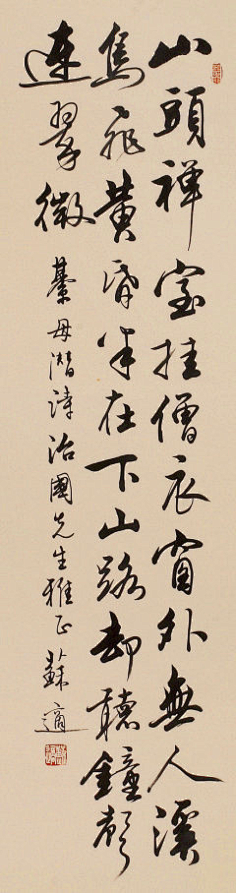 山頭禅室挂僧衣窗外無人溪
鳥飛黄昏半在下山路却聽鐘聲
連翠微 綦毋潛詩治國先生雅正 蘇適